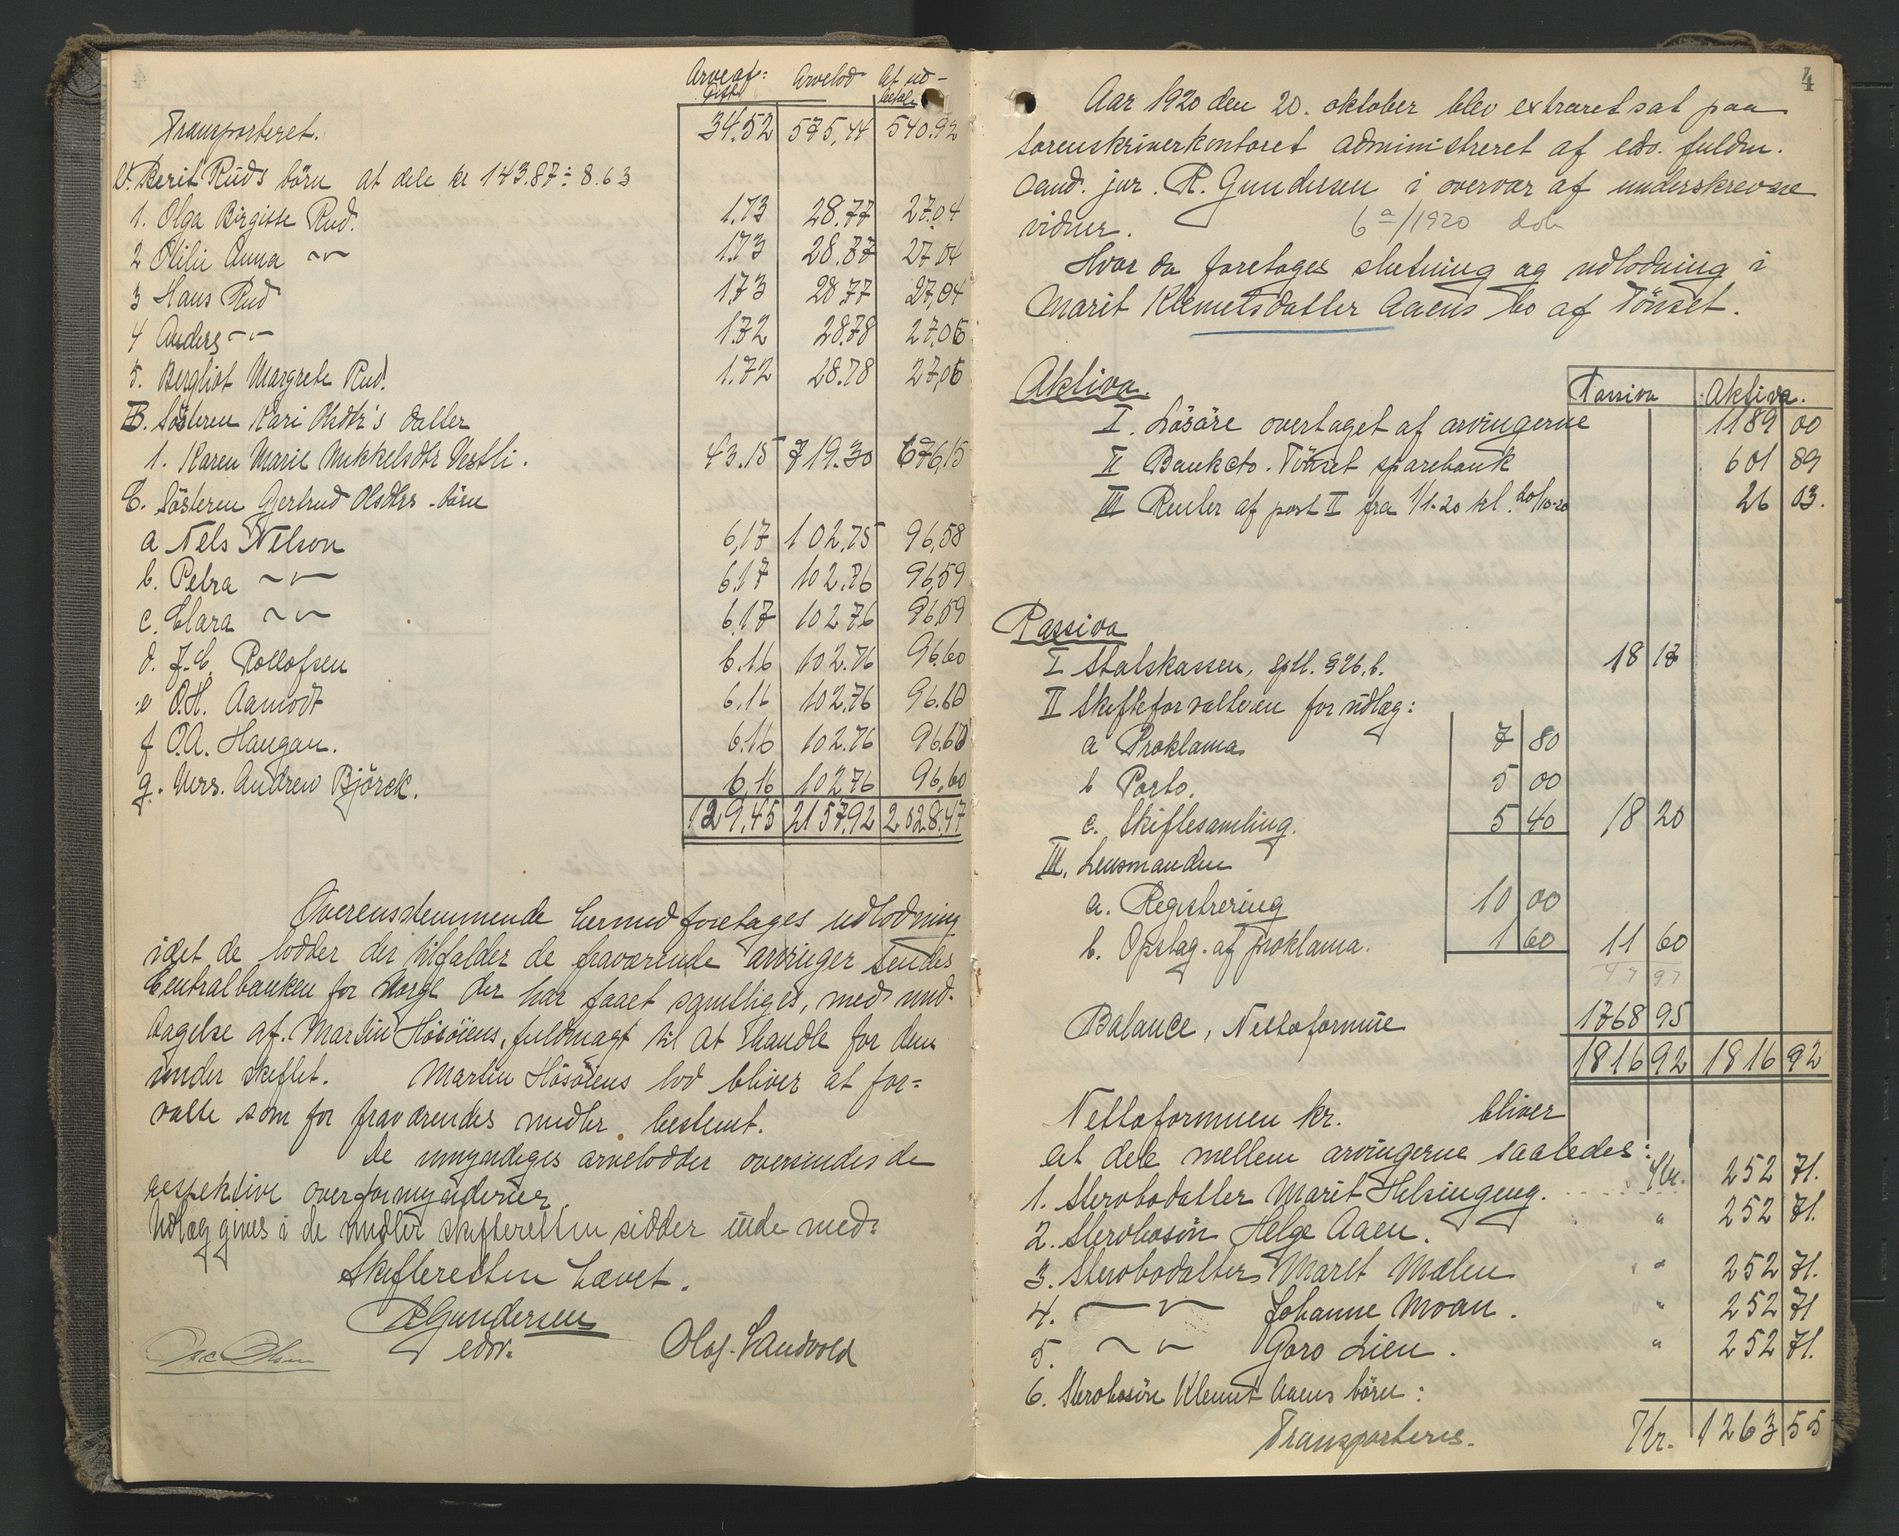 Arveaf:gift Arvelod At ud-betale
Transporteret. 34.52 575,44 540.92
V. Berit Ruds börn at dele kr 143.87 ÷ 8.63
1. Olga Birgitte Rud. 1.73 28.77 27.04
2 Otilie Anna -"- 1.73 28.77 27.04
3 Hans Rud 1.73 28.77 27,04
4 Anders -"- 1.72 28.78 27.06
5. Bergliot Margrete Rud. 1.72 28.78 27,06
B. Sösteren Kari Olsdtr's datter
1. Karen Marie Mikkelsdtr Vestli. 43.15 719.30 676,15
C. Sösteren Gjertrud Olsdtrs börn
a Nels Nelson 6,17 102,75 96,58
b. Petra -"- 6.17 102.76 96,59
c. Clara -"- 6.17 102.76 96,59
d. J.C. Rollofsen 6.16 102.76 96,60
e O.H. Aamodt 6.16 102.76 96.60
f O.A. Haugan. 6.16 102.76 96.60
g. Mrs. Andrew Björck. 6,16 102.76 96,60
129,45 2157,92 2028.47
Overensstemmende hermed foretages udlodning
idet de lodder der tilfalder de fraværende arvinger sendes
Centralbanken for Norge der har faaet samtliges, med und-
tagelse af Martin Hösöiens, fuldmagt til at handle for dem
under skiftet. Martin Hösöiens lod bliver at for-
valte som for fraværendes midler bestemt.
De umyndiges arvelodder oversendes de
respektive overformynderier
Udlæg gives i de midler skifteretten sidder inde med.
Skifteretten hævet.
R Gundersen
edsv.
Olaf Sandvold
4
Aar 1920 den 20. oktober blev extraret sat paa
sorenskriverkontoret administreret af eds. fuldm.
cand. jur. R. Gundersen i overvær af underskrevne
vidner. 6 a/1920
Hvor da foretoges slutning og udlodning i
Marit Klemetsdatter Aaens bo af Tönset.
Aktiva. Passiva Aktiva.
I. Lösöre overtaget af arvingerne 1189 00
II Bankcto. Tönset sparebank 601 89
III Renter af post II fra 1/1-20 til 20/10-20 26 03.
Passiva
I Statskassen, sptl. § 26, b. 18 17
II Skifteforvalteren for udlæg:
a Proklama 7 80
b Porto. 5 00
c. Skiftesamling. 5 40 18 20
III. Lensmanden
a. Registrering 10 00
b. Opslag. af proklama. 1 60 11 60
47 97
Balance, Nettoformue 1768 95
1816 92 1816 92
Nettoformuen kr. bliver
at dele mellem arvingerne saaledes:
1. Sterbodatter Marit Helsingeng. Kr. 252 71.
2. Sterbosön Helge Aaen. " 252 71.
3. Sterbodatter Maret Mælen " 252 71.
4. -"- Johanne Moan. " 252 71
5. -"- Goro Lien. " 252 71.
6. Sterbosön Klemet Aaens börn:
Transporteres. Kr. 1263 55